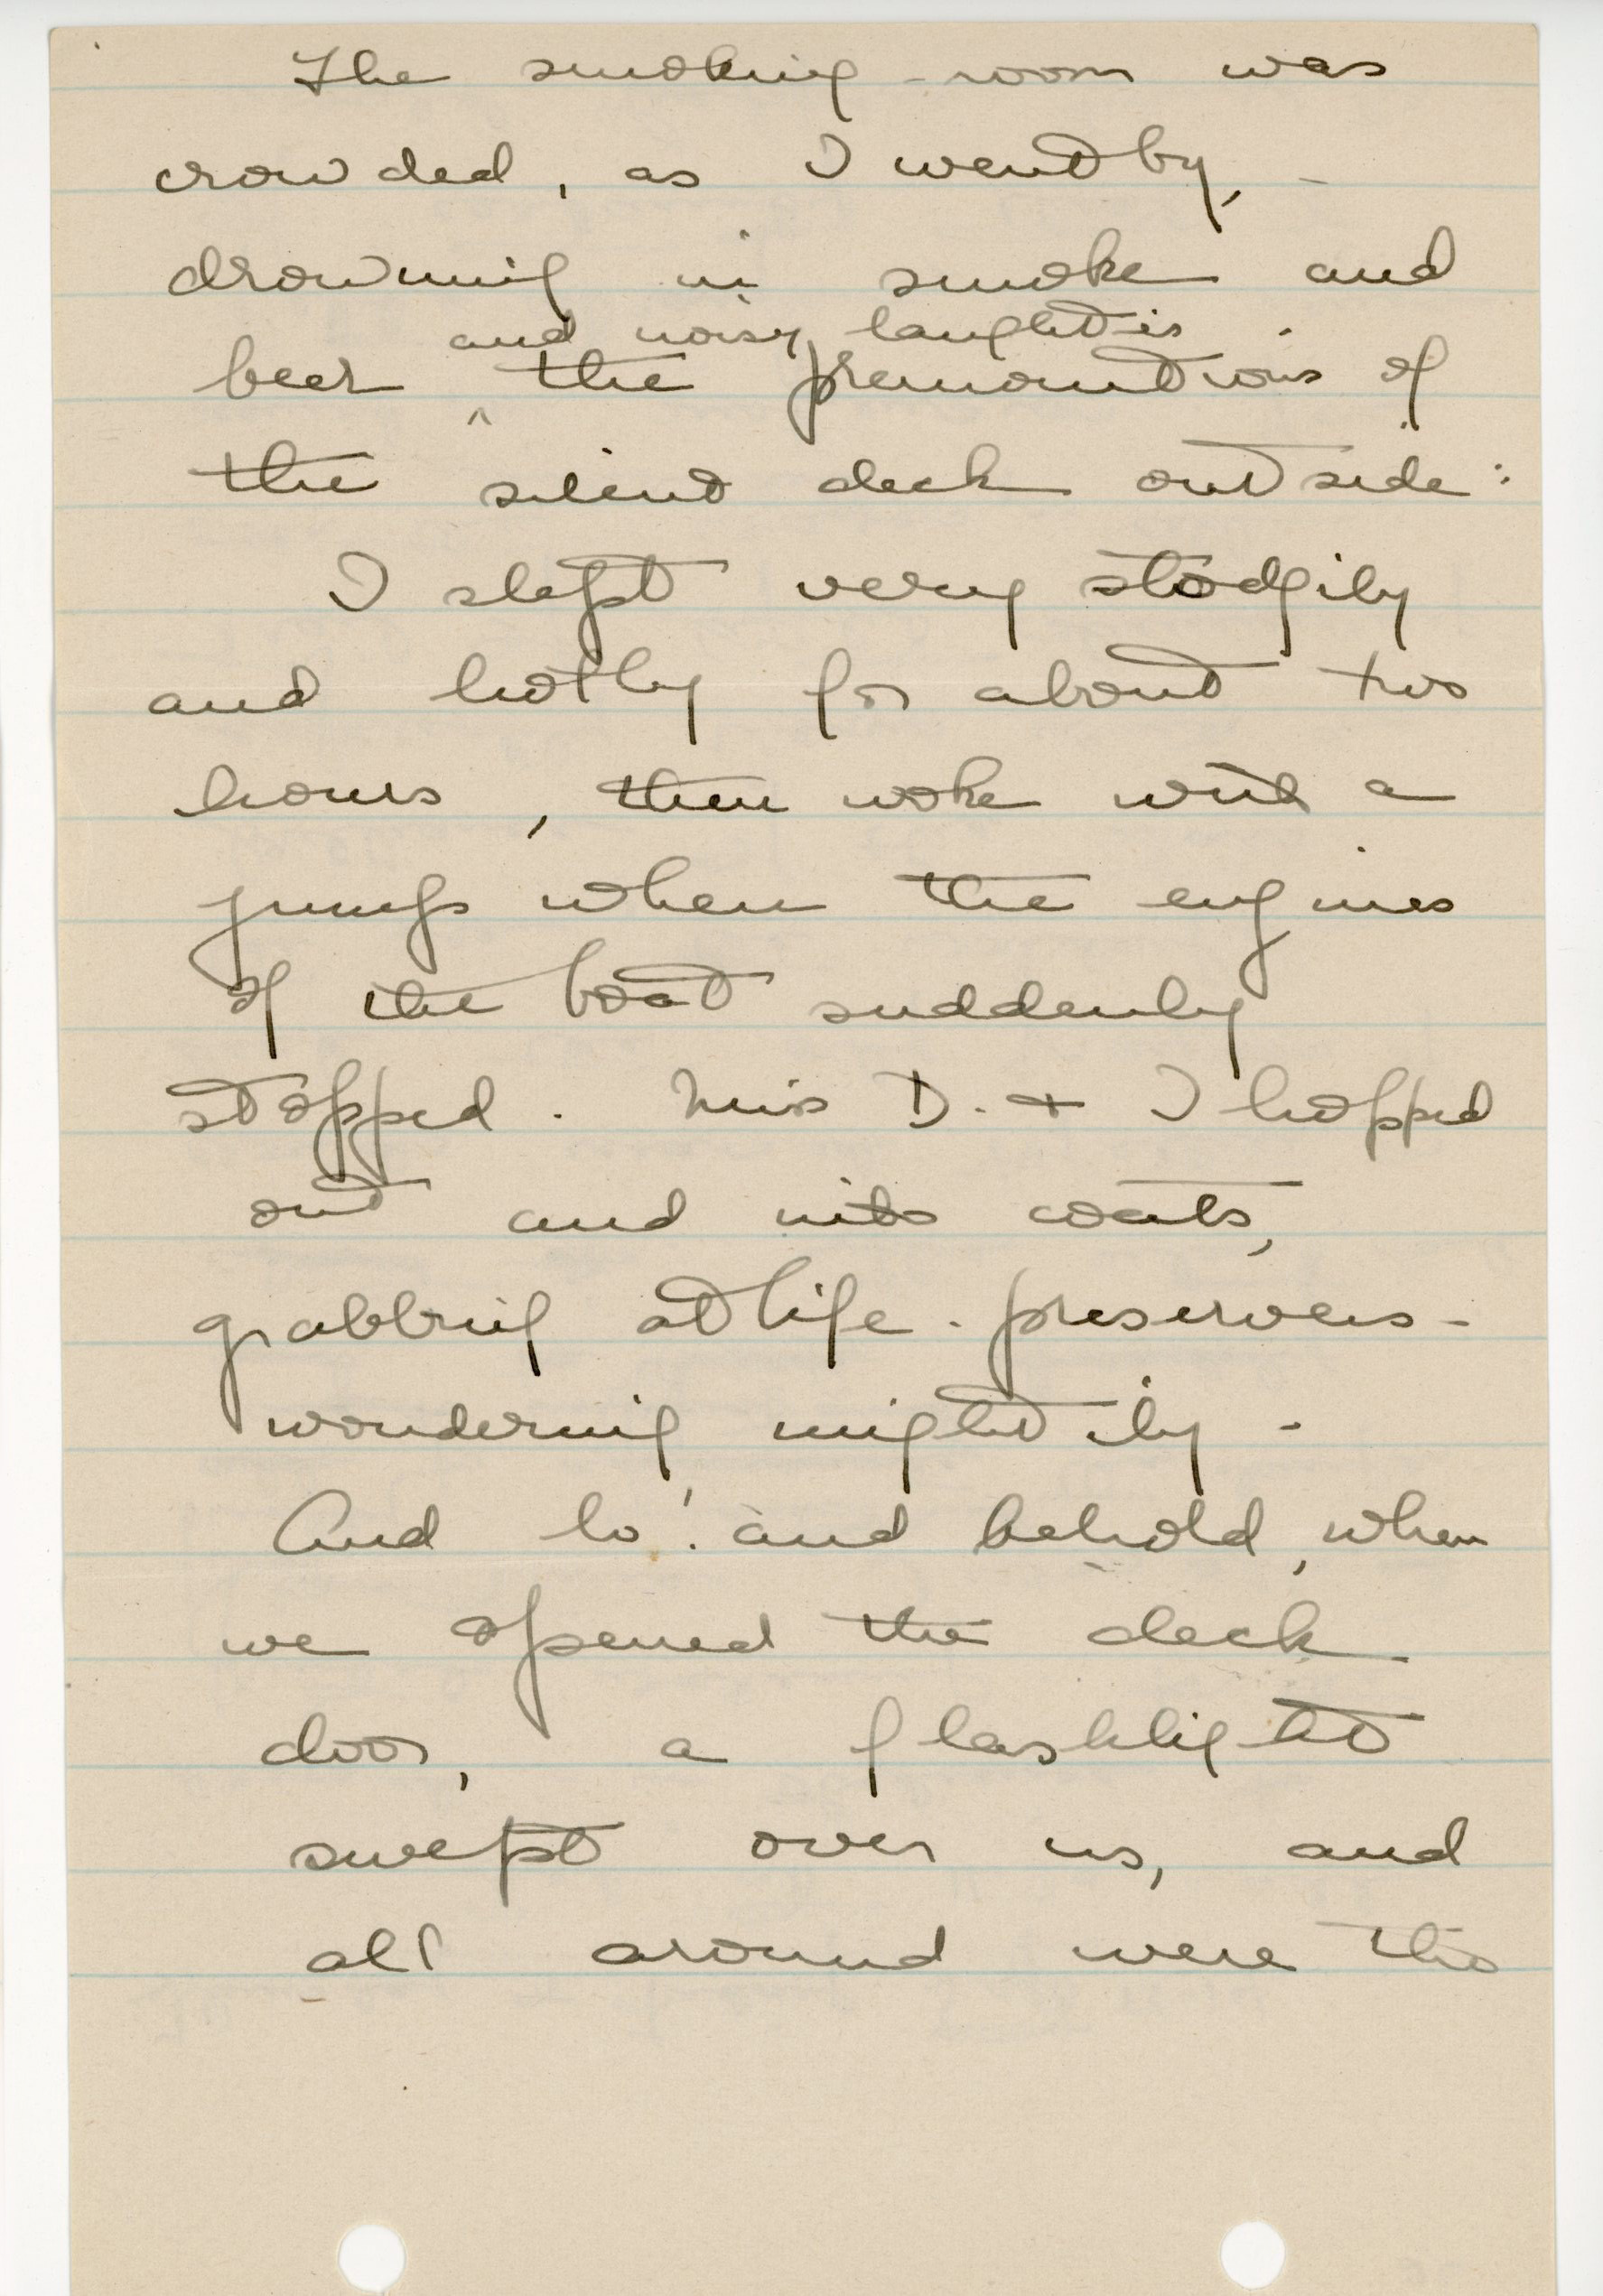 The smoking-room was
crowded, as I went by, -
drowning in smoke and
and noisy laughter
beer ^ the premonitions of
the silent deck outside:
I slept very stodgily
and hotly for about two
hours, then woke with a
jump when the engines
of the boat suddenly
stopped. Miss D. + I hopped
out and into coats,
grabbing at life-preservers -
wondering mightily -
And lo! and behold, when
we opened the deck
door, a flashlight
swept over us, and
all around were the